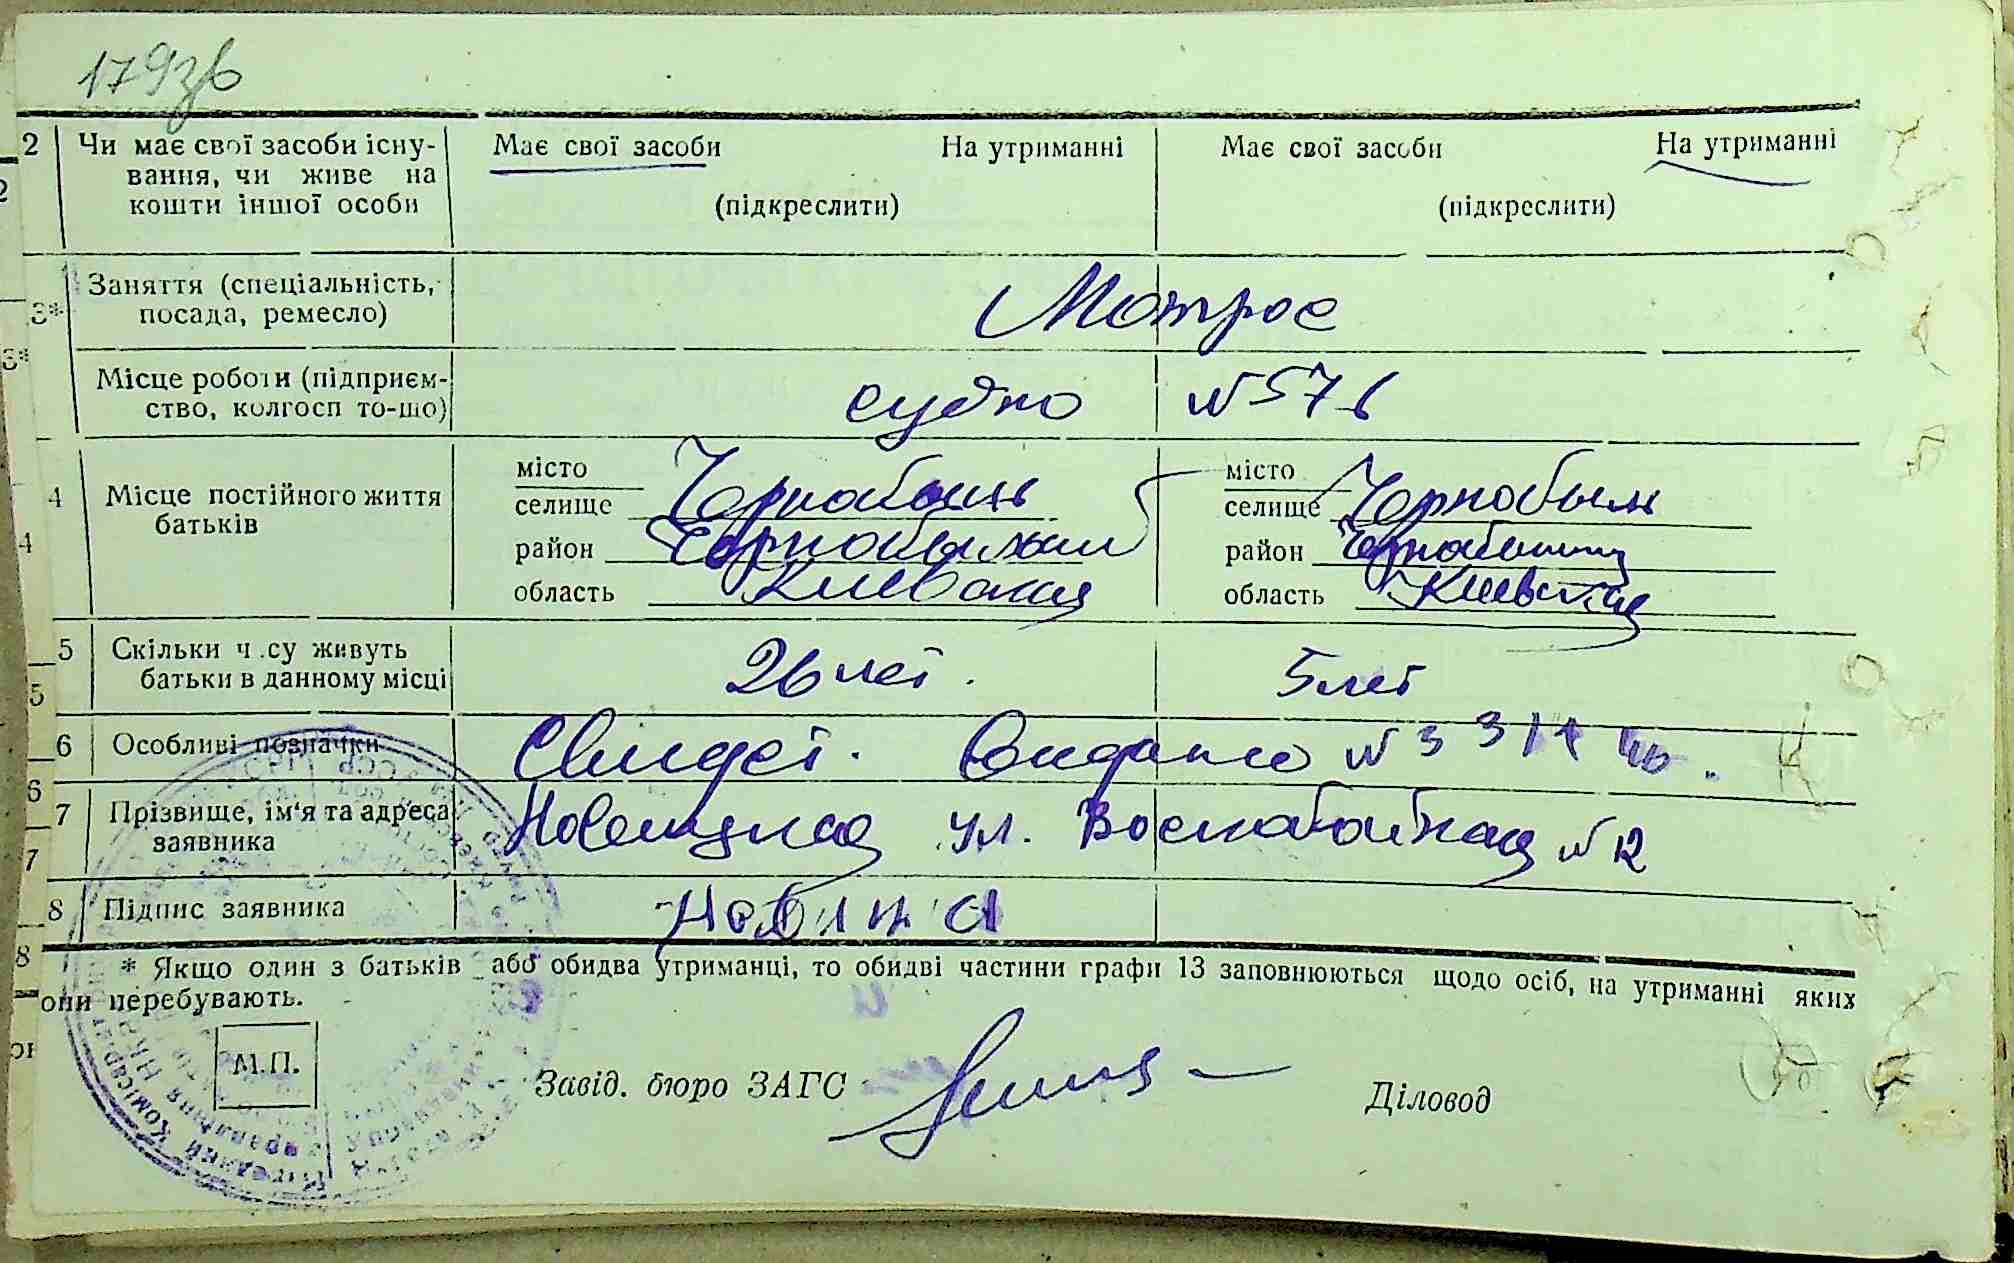 179зв
2 Чи має свої засоби існу- Має свої засоби На утриманні Має свої засоби На утриманні
вання, чи живе на
кошти іншої особи (підкреслити) (підкреслити)
3* Заняття (спеціальність, Матрос
посада, ремесло)
Місце роботи (підприєм- судно №576
ство, колгосп то-що)
4 Місце постійного життя місто місто
батьків селище Чернобыль селище Чернобыль
район район
область Киевская область Киевская
5 Скільки ч.су живуть 26 лет. 5 лет
батьки в данному місці
6 Особливі позначки Свидет. Выдано №
7 Прізвище, ім'я та адреса Новицкая ул. №12
заявника
8 Підпис заявника
* Якщо один з батьків або обидва утриманці, то обидві частини графи 13 заповнюються щодо осіб, на утриманні яких
они перебувають.
М.П. Завід. бюро ЗАГС Діловод